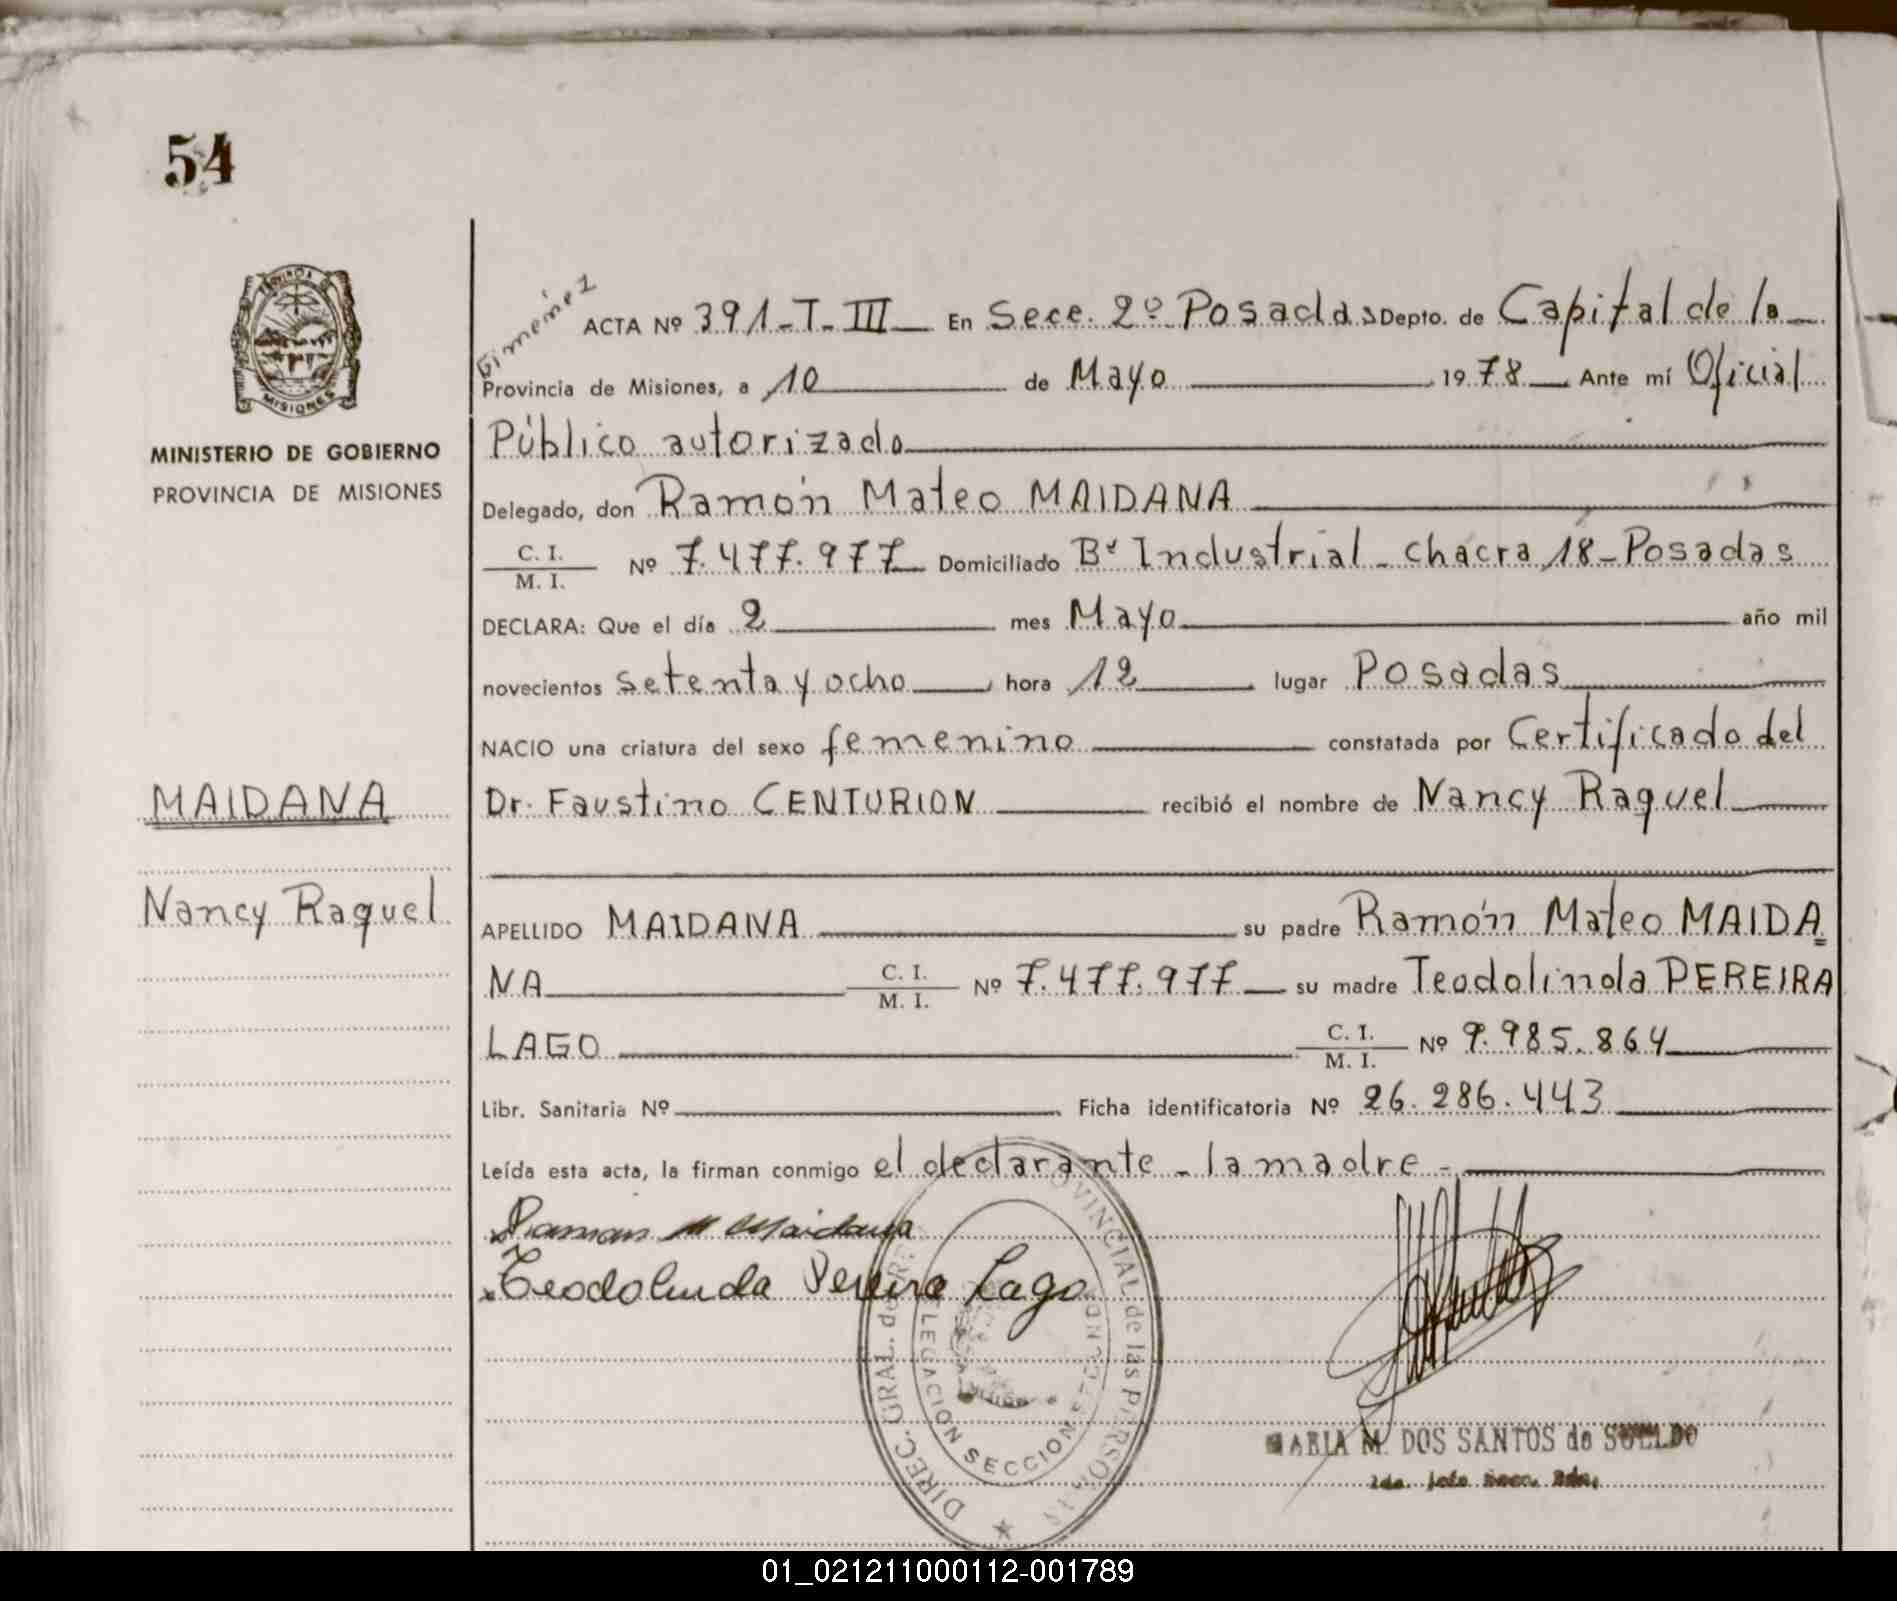 54
PROVINCIA
MISIONES
MINISTERIO DE GOBIERNO
PROVINCIA DE MISIONES
MAIDANA
Nancy Raquel
Gimenez
ACTA Nº 391-T-III En Secc. 2º Posadas Depto. de Capital de la
Provincia de Misiones, a 10 de Mayo 1978 Ante mí Oficial
Público autorizado
Delegado, don Ramón Mateo MAIDANA
C. I.
M. I. Nº 7.477.977 Domiciliado Bº Industrial - chacra 18 - Posadas
DECLARA: Que el día 2 mes Mayo año mil
novecientos setenta y ocho hora 12 lugar Posadas
NACIO una criatura del sexo femenino constatada por Certificado del
Dr. Faustino CENTURION recibió el nombre de Nancy Raquel
APELLIDO MAIDANA su padre Ramón Mateo MAIDA=
NA C. I.
M. I. Nº 7.477.977 su madre Teodolinda PEREIRA
LAGO C. I.
M. I. Nº 9.985.864
Libr. Sanitaria Nº Ficha identificatoria Nº 26.286.443
Leída esta acta, la firman conmigo el declarante - la madre -
Ramon M Maidana
Teodolinda Pereira Lago
DIREC. GRAL. de PROVINCIAL de las PERSONAS
DELEGACION SECCION SEGUNDA
MARIA M. DOS SANTOS de SUELDO
01_021211000112-001789